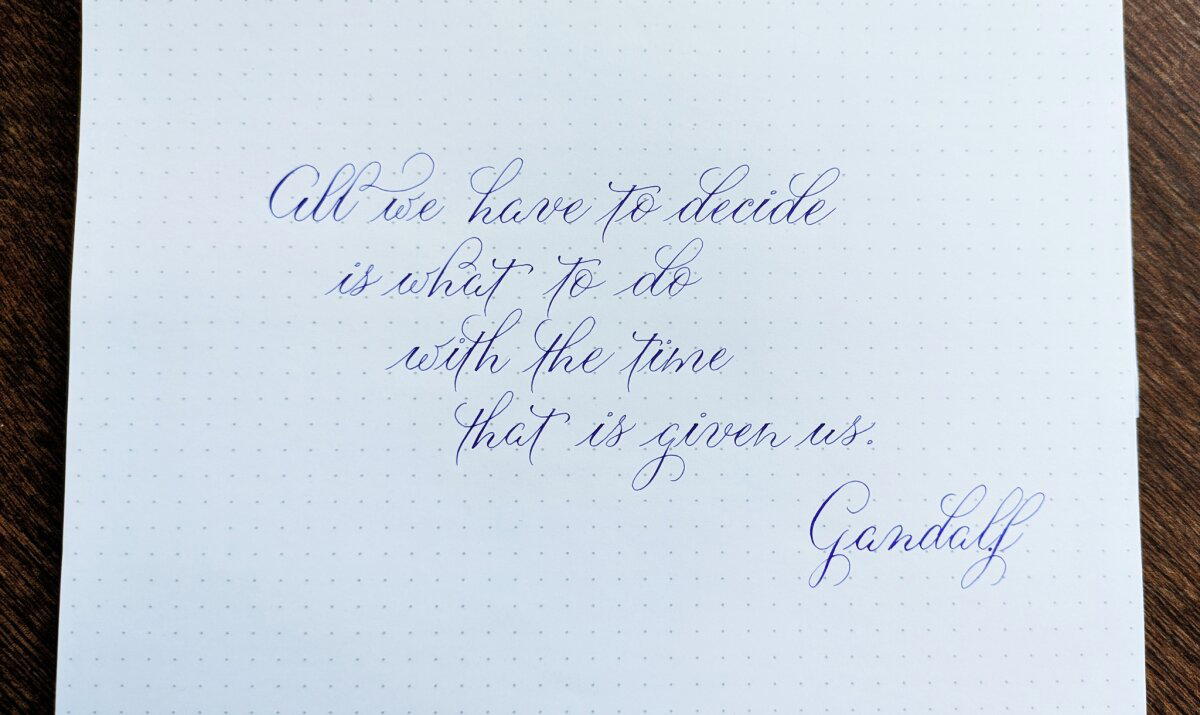 All we have to decide
is what to do
with the time
that is given us.
Gandalf